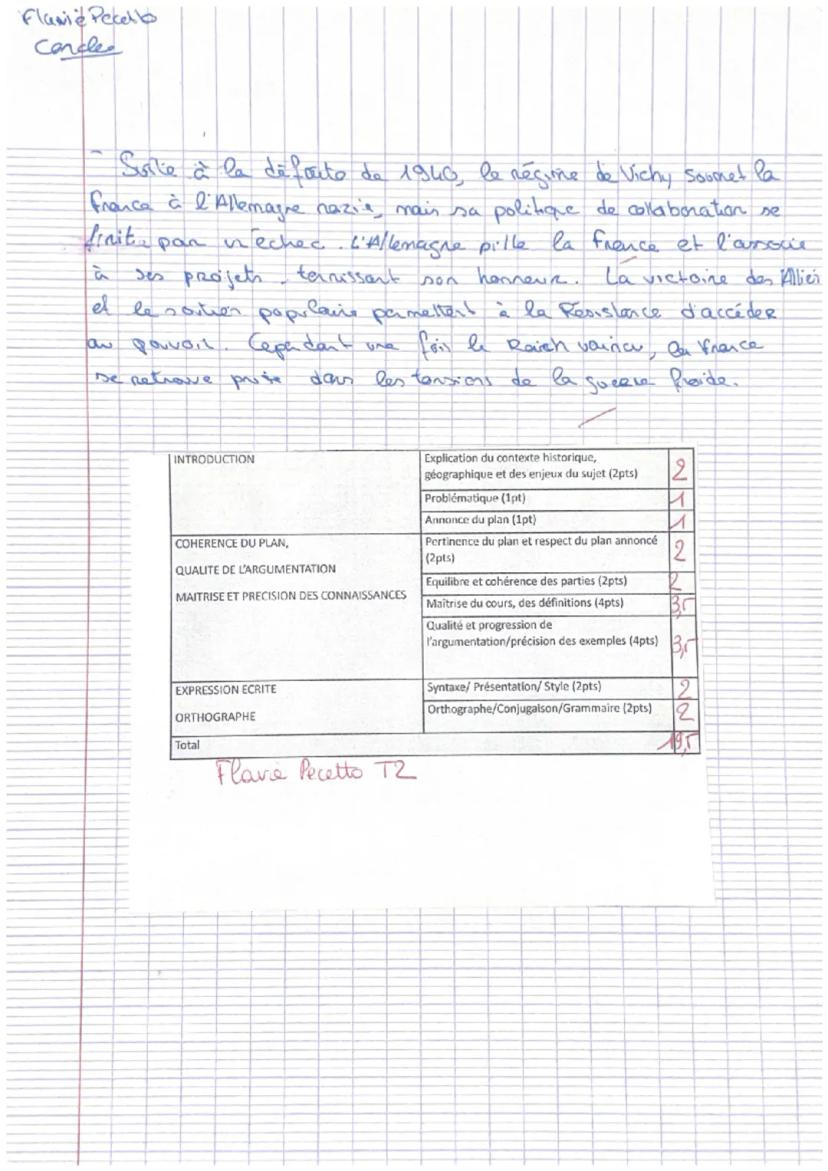 Flavie Pecetto
Suite à la défaite de 1940, le régime de Vichy soumet la
france à l'Allemagne nazie, mais sa politique de collaboration se
finit par un echec. L'Allemagne pille la france et l'associe
à ses projets, ternissant son honneur. La victoire des Alliés
et le soutien populaire permettent à la Résistance d'accéder
au pouvoir. Cependant une fois le Reich vaincu, la France
se retrouve prise dans les tensions de la guerre froide.
INTRODUCTION
Explication du contexte historique,
géographique et des enjeux du sujet (2pts) 2
Problématique (1pt) 1
Annonce du plan (1pt) 1
COHERENCE DU PLAN,
QUALITE DE L'ARGUMENTATION
MAITRISE ET PRECISION DES CONNAISSANCES
Pertinence du plan et respect du plan annoncé
(2pts) 2
Equilibre et cohérence des parties (2pts) 2
Maîtrise du cours, des définitions (4pts) 3,5
Qualité et progression de
l'argumentation/précision des exemples (4pts) 3,5
EXPRESSION ECRITE
ORTHOGRAPHE
Syntaxe/ Présentation/ Style (2pts) 2
Orthographe/Conjugaison/Grammaire (2pts) 2
Total 19,5
Flavie Pecetto T2